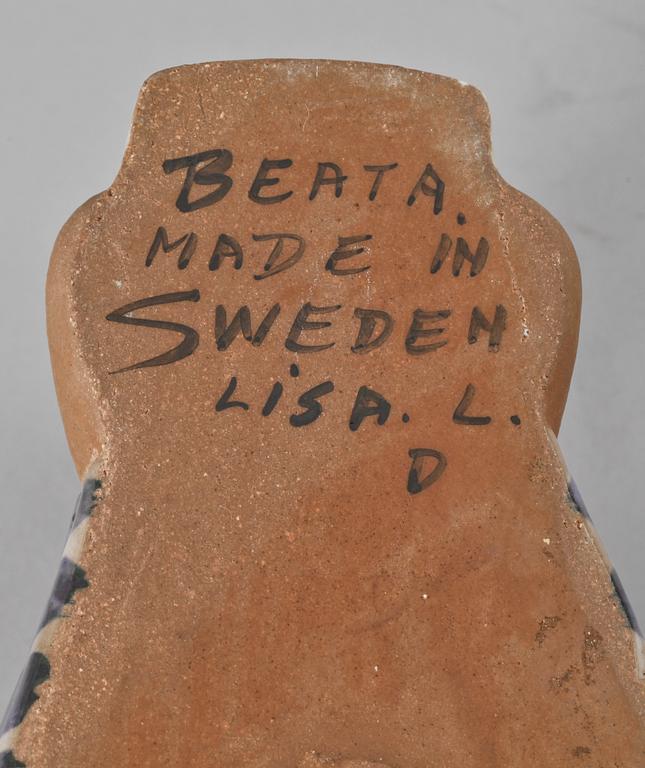 BEATA.
MADE IN
SWEDEN
LiSA. L.
D